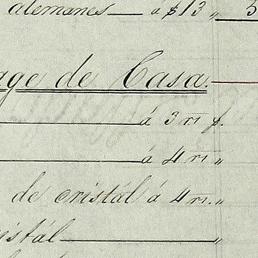 alemanes — á $13 „ 5
age de Casa.
— á 3 rs p.
— á 4 rs „
de cristal á 4 rs. „
istál — „